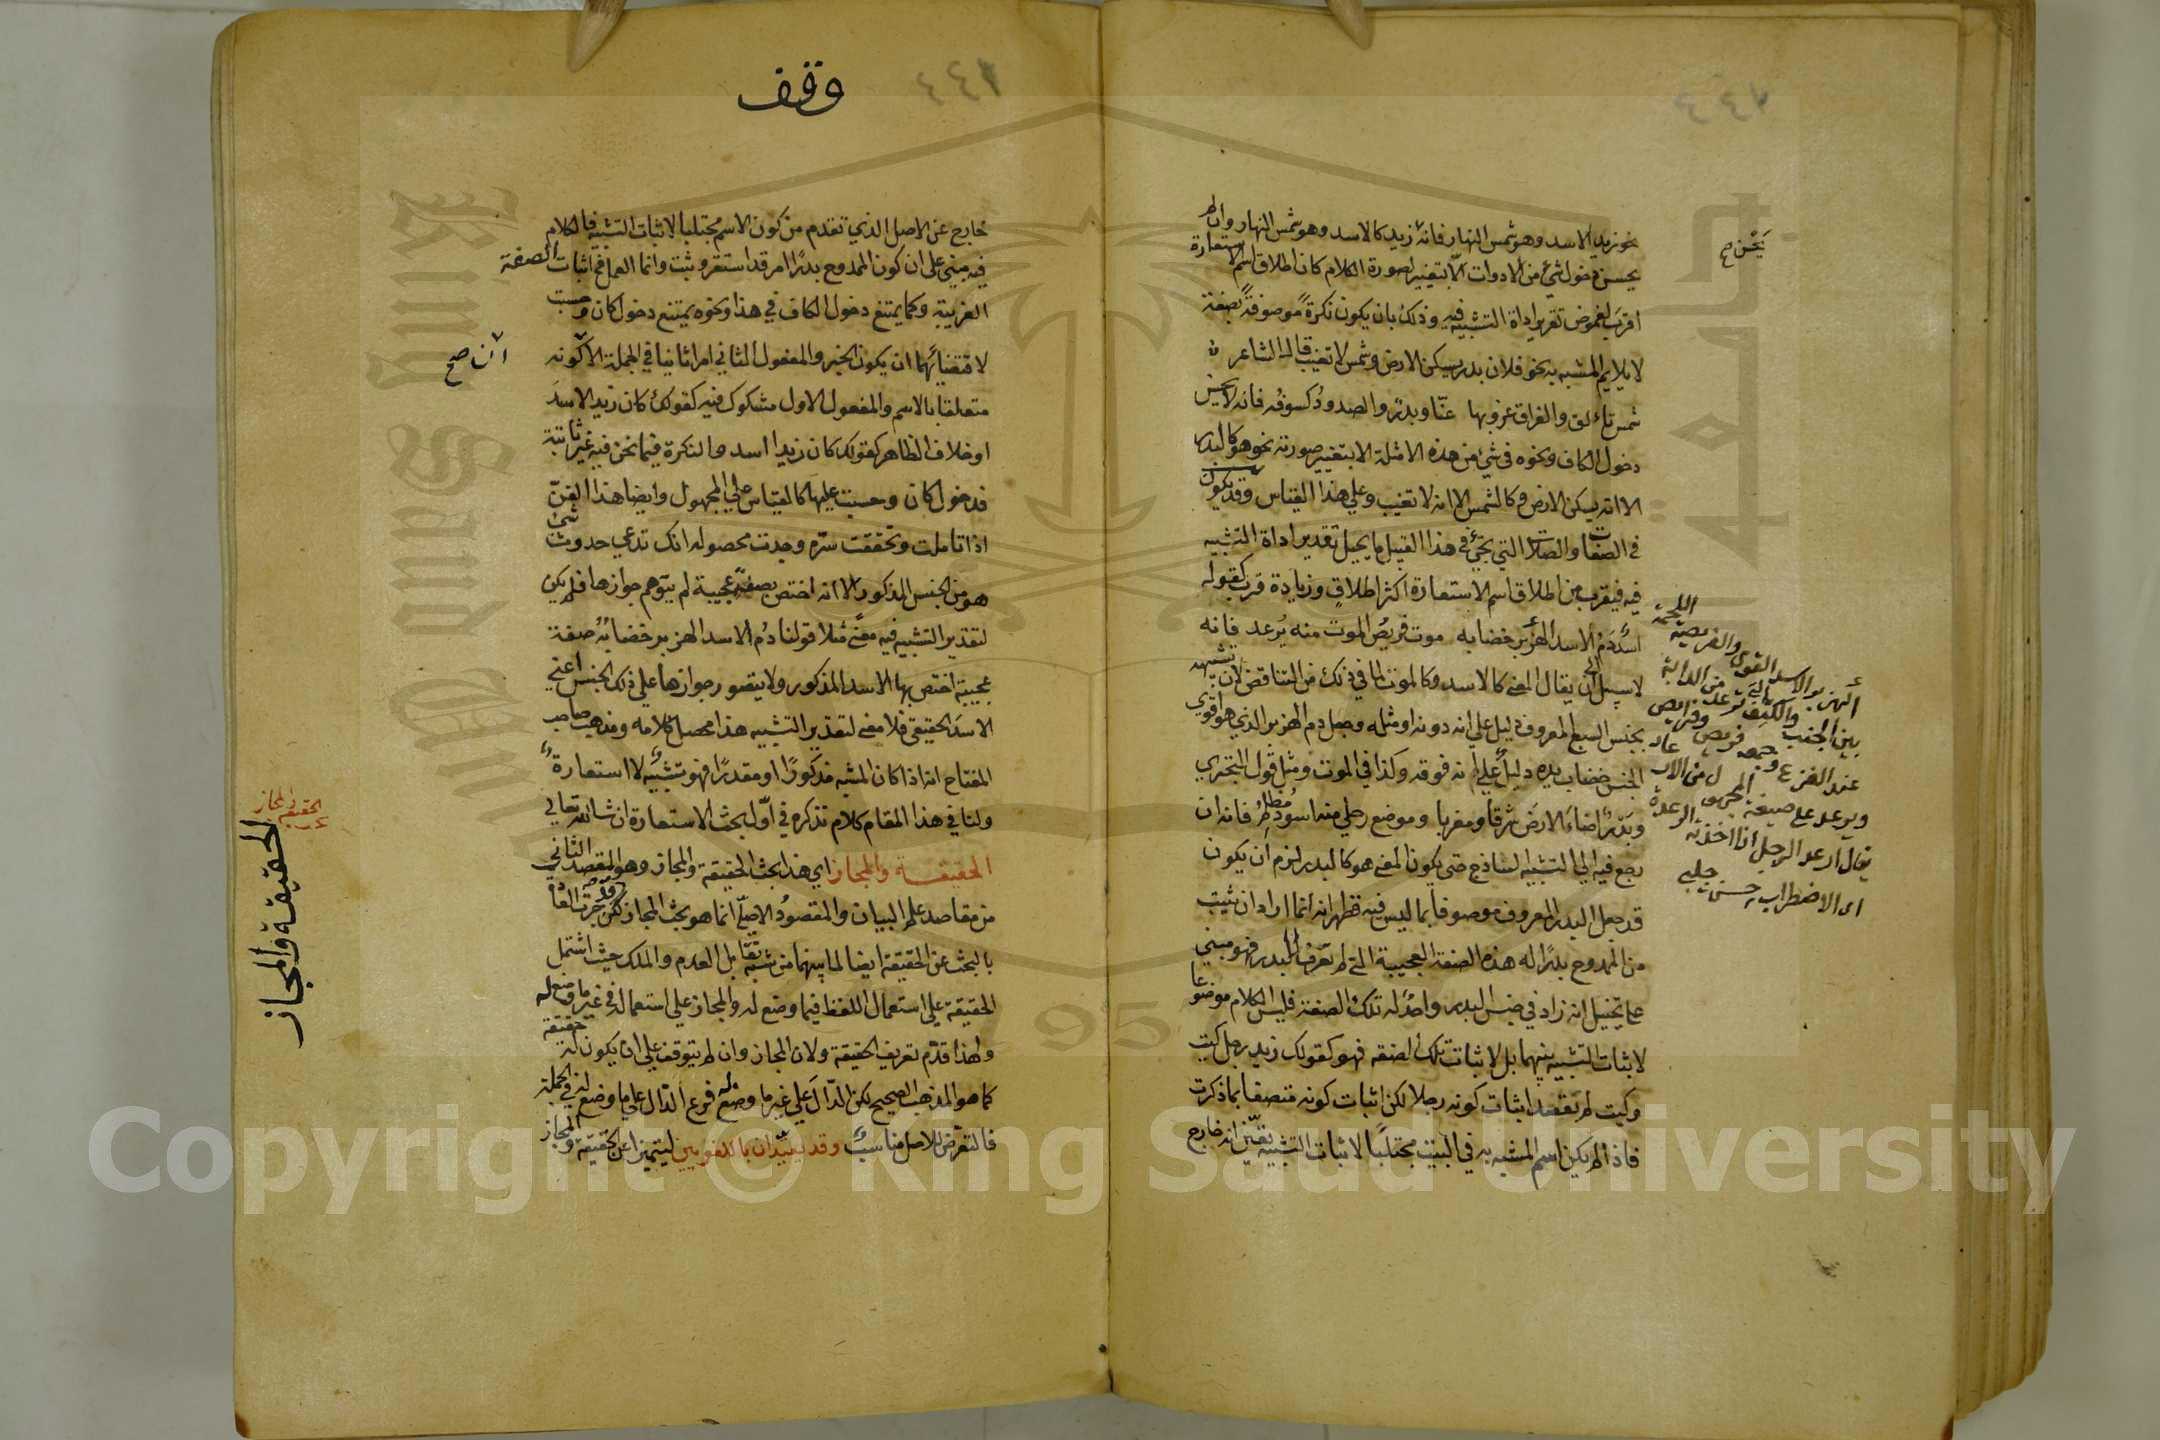 نحو زيد الاسد وهو شمس النهار فانه زيد كالاسد وهو شمس النهار وان لم
يحسن دخول شئ من الادوات الا بتغيير لصورة الكلام كان اطلاق اسم الاستعارة
اقرب لغموض تقرير اداة التشبيه فيه وذلك بان يكون نكرة موصوفة بصفة
لا يلايم المشبه به نحو فلان بدر يسكن الارض وشمس لا تغيب قال الشاعر
شمس تألق والفراق غروبها عنا وبدر والصدود كسوفه فانه لا يحسن
دخول الكاف ونحوه فى شئ من هذه الامثلة الا بتغيير صورته نحو هو كالبدر
الا انه يسكن الارض وكالشمس الا انه لا تغيب وعلى هذا القياس وقد يكون
فى الصفات والصلات التي تجئ فى هذا القبيل ما يحيل تقدير اداة التشبيه
فيه فيقرب من اطلاق اسم الاستعارة اكثر اطلاق وزيادة قرب كقوله
اسد دم الاسد الهزبر خضابه موت فريص الموت منه يرعد فانه
لا سبيل الى ان يقال المعنى كالاسد وكالموت لما في ذلك من التناقض لان تشبيهه
بجنس السبع المعروف دليل على انه دونه او مثله وجعل دم الهزبر الذي هو اقوى
الجنس خضاب يده دليل على انه فوقه وكذا في الموت ومثل قول البحتري
وبدر اضاء الارض شرقا ومغربا وموضع رحلي منه اسود مظلم فانه ان
رجع فيه الى التشبيه الساذج حتى يكون المعنى هو كالبدر لزم ان يكون
قد جعل البدر المعروف موصوفا بما ليس فيه فظهر انه انما اراد ان يثبت
من الممدوح بدرا له هذه الصفة العجيبة التي لم تعرف للبدر فهو مبني
على تخييل انه زاد في جنس البدر واحد له تلك الصفة فليس الكلام موضوعا
لاثبات التشبيه بينهما بل لاثبات تلك الصفة فهو كقولك زيد رجل كيت
وكيت لم تقصد اثبات كونه رجلا لكن اثبات كونه متصفا بما ذكرت
فاذا لم يكن اسم المشبه به في البيت مجتلبا لاثبات التشبيه تبين انه خارج
يحسن صح
الهزبر الاسد القوى والفريصة اللحمة
بين الجنب والكتف من الدابة
عند الفزع وجمعه فريص وفرائص
ويرعد على صيغة المجهول من الارعاد
يقال ارعد الرجل اذا اخذته الرعدة
اى الاضطراب حسن جلبي
وقف
خارج عن الاصل الذي تقدم من كون الاسم مجتلبا لاثبات التشبيه فالكلام
فيه مبني على ان كون الممدوح بدرا امر قد استقر وثبت وانما العمل في اثبات الصفة
الغريبة وكما يمتنع دخول الكاف في هذا ونحوه يمتنع دخول كان وحسبت
لاقتضائهما ان يكون الخبر والمفعول الثاني امرا ثابتا في الجملة الا ان كونه
متعلقا بالاسم والمفعول الاول مشكوك فيه كقولك كان زيد الاسد
او خلاف الظاهر كقولك كان زيدا اسد والنكرة فيما نحن فيه غير ثابتة
فدخول كان وحسبت عليها كالقياس على المجهول وايضا هذا الفن
اذا تاملت وتحققت سره وجدت محصوله انك تدعي حدوث شئ
هو من الجنس المذكور الا انه اختص بصفة عجيبة لم يتوهم جوازها فلم يكن
لتقدير التشبيه فيه معنى مثلا قولنا دم الاسد الهزبر خضابه صفة
عجيبة اختص بها الاسد المذكور ولا يتصور جوازها على ذلك الجنس اعني
الاسد الحقيقي فلا معنى لتقدير التشبيه هذا محصل كلامه ومذهب صاحب
المفتاح انه اذا كان المشبه مذكورا او مقدرا فهو تشبيه لا استعارة
ولنا في هذا المقام كلام نذكره في اول بحث الاستعارة ان شاء الله تعالى
الحقيقة والمجاز اي هذا بحث الحقيقة والمجاز وهو المقصد الثاني
من مقاصد علم البيان والمقصود الاصلي انما هو بحث المجاز لكن قد جرت العادة
بالبحث عن الحقيقة ايضا لما بينهما من شبه تقابل العدم والملكة حيث اشتمل
الحقيقة على استعمال اللفظ فيما وضع له والمجاز على استعماله في غير ما وضع له
ولهذا قدم تعريف الحقيقة ولان المجاز وان لم يتوقف على ان يكون له حقيقة
كما هو المذهب الصحيح لكن الدال على غير ما وضع له فرع الدال على ما وضع له في الجملة
فالتعرض للاصل مناسب وقد يقيدان باللغويين ليتميزا عن الحقيقة والمجاز
ان صح
الحقيقة والمجاز
الحقيقة والمجاز
Copyright © King Saud University